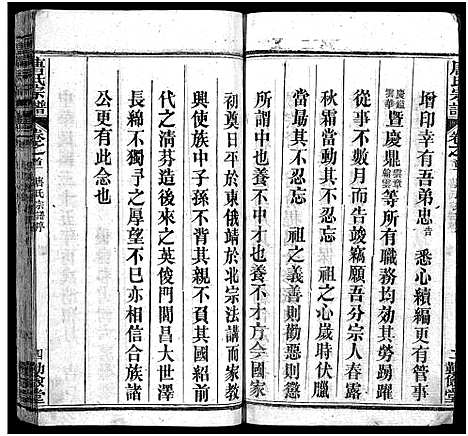 唐氏宗譜
卷之首
增印幸有吾弟忠吉 悉心續編更有管事
慶鎰雲華曁慶鼎雲章翰雲等所有職務均効其勞踴躍
從事不數月而告竣竊願吾分宗人春露
秋霜當期其不忍忘 祖之心歲時伏臘
當勗其不忍忘 祖之義善則勸惡則懲
所謂中也養不中才也養不才方今國家
初奠日平於東俄靖於北宗法講而家教
興使族中子孫不背其親不忘前
代之清芬造後來之英俊門閭昌大世澤
長綿不獨予之厚望不已亦相合族諸
公更有此念也
唐氏宗譜
卷之首
唐氏宗譜
四 勤儉堂